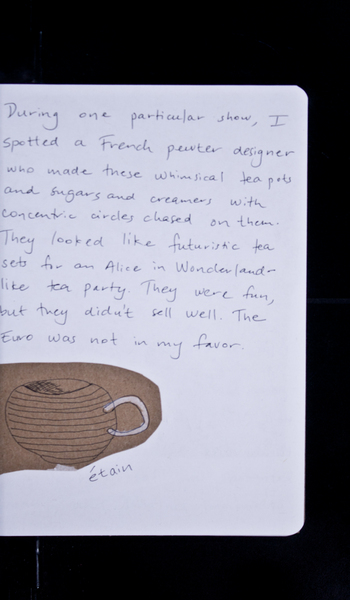 During one particular show, I
spotted a French pewter designer
who made these whimsical tea pots
and sugars and creamers with
concentric circles chased on them.
They looked like futuristic tea
sets for an Alice in Wonderland-
like tea party. They were fun,
but they didn't sell well. The
Euro was not in my favor.
étain